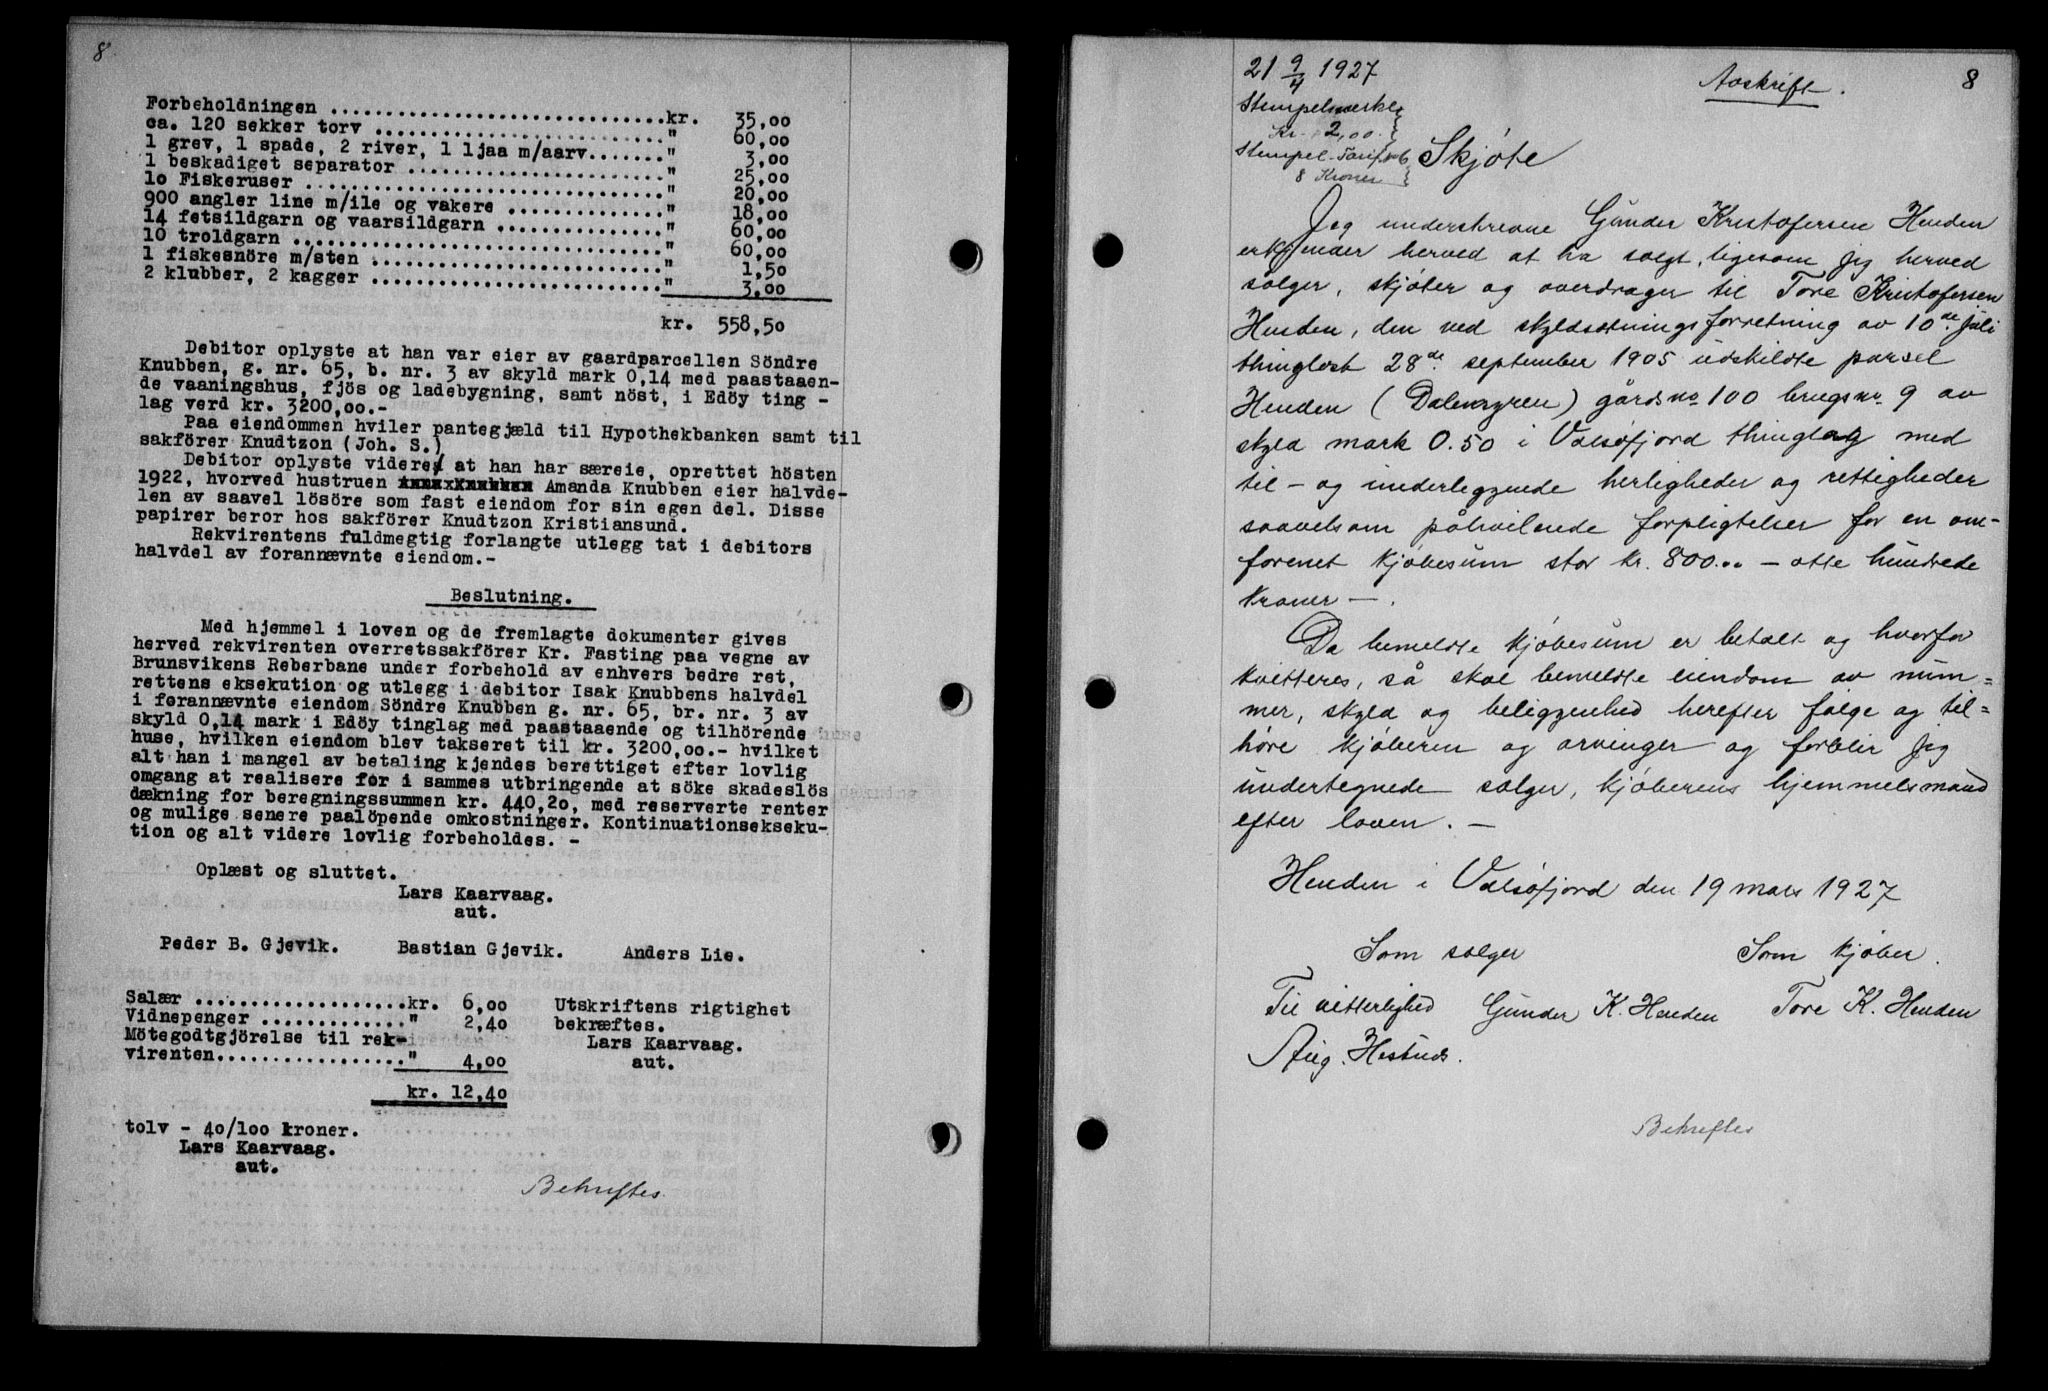 8
Forbeholdningen ................................kr. 35,00
ca. 120 sekker torv ............................" 60,00
1 grev, 1 spade, 2 river, 1 ljaa m/aarv......." 3,00
1 beskadiget separator ........................" 25,00
10 Fiskeruser ................................." 20,00
900 angler line m/ile og vakere ..............." 18,00
14 fetsildgarn og vaarsildgarn ................" 60,00
10 troldgarn .................................." 60,00
1 fiskesnöre m/sten ..........................." 1,50
2 klubber, 2 kagger ..........................." 3,00
kr. 558,50
Debitor oplyste at han var eier av gaardparcellen Söndre
Knubben, g. nr. 65, b. nr. 3 av skyld mark 0,14 med paastaaen-
de vaaningshus, fjös og ladebygning, samt nöst, i Edöy ting -
lag verd kr. 3200,00.-
Paa eiendommen hviler pantegjæld til Hypothekbanken samt til
sakförer Knudtzon (Joh. S.)
Debitor oplyste videre at han har særeie, oprettet hösten
1922, hvorved hustruen Amanda Knubben eier halvde-
len av saavel lösöre som fast eiendom for sin egen del. Disse
papirer beror hos sakförer Knudtzon Kristiansund.
Rekvirentens fuldmegtig forlangte utlegg tat i debitors
halvdel av forannævnte eiendom.-
Beslutning.
Med hjemmel i loven og de fremlagte dokumenter gives
herved rekvirenten overretssakförer Kr. Fasting paa vegne av
Brunsvikens Reberbane under forbehold av enhvers bedre ret,
rettens eksekution og utlegg i debitor Isak Knubbens halvdel
i forannævnte eiendom Söndre Knubben g. nr. 65, br. nr. 3 av
skyld 0,14 mark i Edöy tinglag med paastaaende og tilhörende
huse, hvilken eiendom blev takseret til kr. 3200,00.- hvilket
alt han i mangel av betaling kjendes berettiget efter lovlig
omgang at realisere for i sammes utbringende at söke skadeslös
dækning for beregningssummen kr. 440,20, med reserverte renter
og mulige senere paalöpende omkostninger. Kontinuationseksekution
og alt videre lovlig forbeholdes. -
Oplæst og sluttet.
Lars Kaarvaag.
aut.
Peder B. Gjevik. Bastian Gjevik. Anders Lie.
Salær ....................kr. 6,00 Utskriftens rigtighet
Vidnepenger .............." 2,40 bekræftes.
Mötegodtgjörelse til rek- Lars Kaarvaag.
virenten.................." 4,00 aut.
kr. 12,40
tolv - 40/100 kroner.
Lars Kaarvaag.
aut.
Bekreftes
21 9/4 1927 Avskrift. 8
Stempelmerke
Kr. 2,00
Stempel-Tarif
8 Kroner
Skjøte
Jeg underskrevne Gunder Kristofersen Henden
erkjender herved at ha solgt, ligesom jeg herved
sælger, skjøter og overdrager til Tore Kristofersen
Henden, den ved skyldsætningsforretning av 10de juli
thinglæst 28de september 1905 udskildte parsel
Henden (Dalemyren) gårdsno 100 brugsno 9 av
skyld mark 0.50 i Valsøfjord thinglag med
til- og underliggende herligheder og rettigheder
saavelsom påhvilende forpligtelser for en om-
forenet kjøbesum stor kr. 800.00 - otte hundrede
kroner -.
Da bemeldte kjøbesum er betalt og hvorfor
kvitteres, så skal bemeldte eiendom av num=
mer, skyld og beliggenhed herefter følge og til=
høre kjøberen og arvinger og forblir jeg
undertegnede sælger, kjøberens hjemmelsmand
efter loven. -
Henden i Valsøfjord den 19 mars 1927
Som sælger Som kjøber.
Til vitterlighed Gunder K. Henden Tore K. Henden
Aug. Hestnes.
Bekreftes